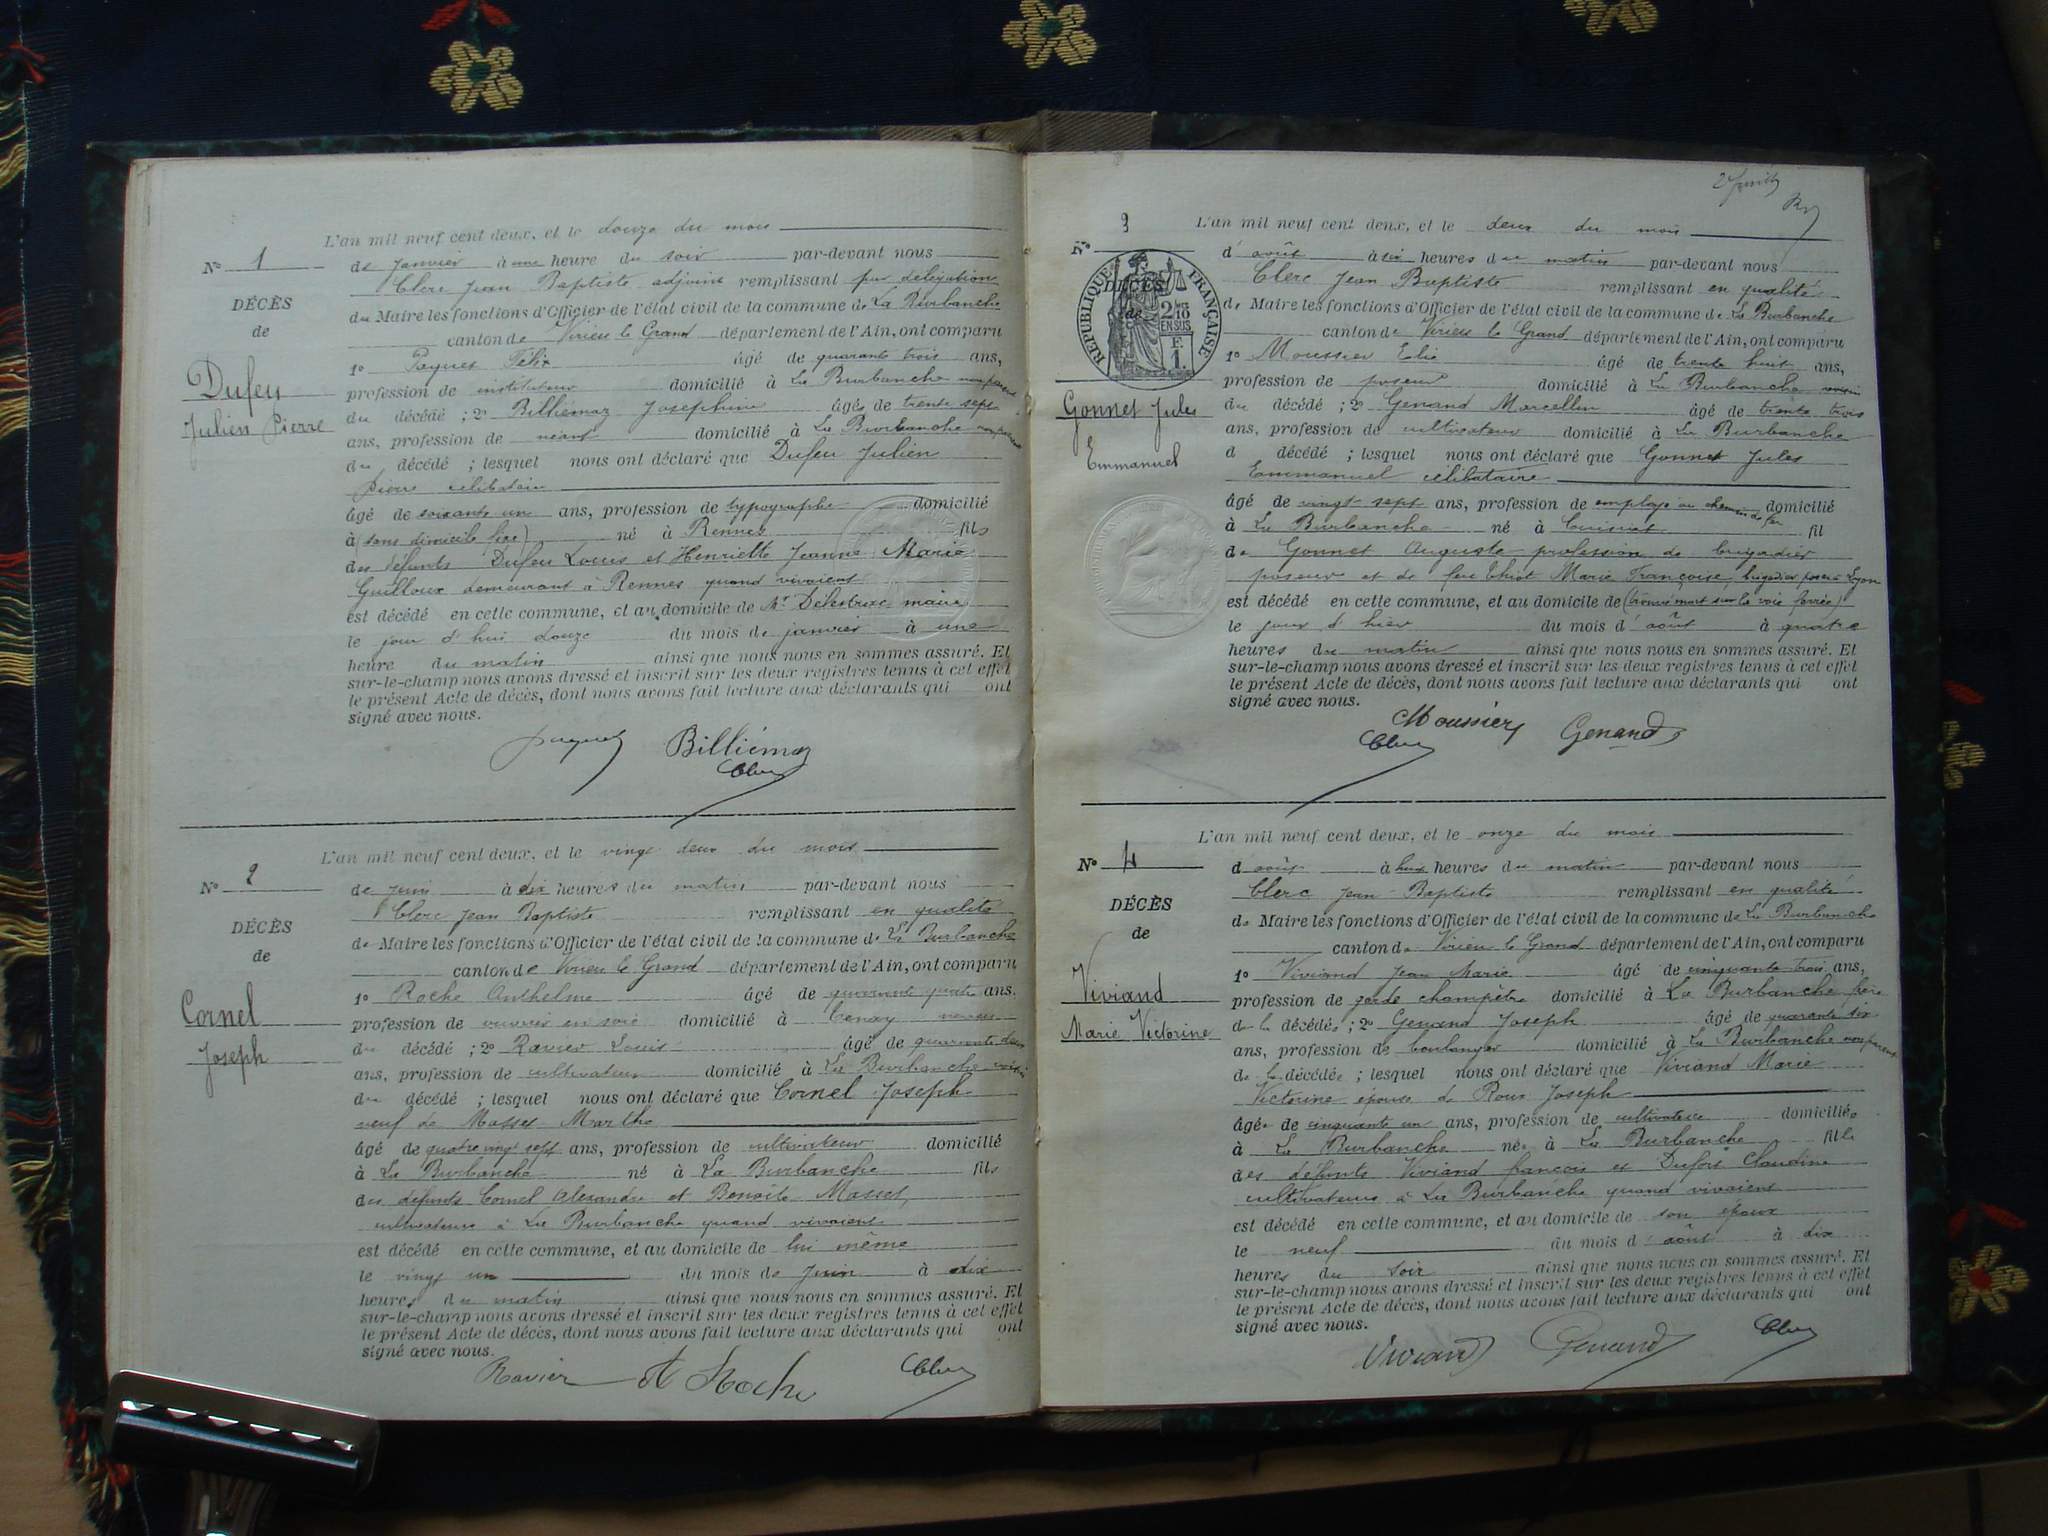 L'an mil neuf cent deux, et le douze du mois
N° 1
de janvier à une heure du soir par-devant nous
Clerc Jean Baptiste adjoint remplissant par délégation
DÉCÈS
du Maire les fonctions d'Officier de l'état civil de la commune de La Burbanche
de
canton de Virieu le Grand département de l'Ain, ont comparu
1° Félix âgé de quarante trois ans,
Dufeu
profession de instituteur domicilié à La Burbanche non parent
Julien Pierre
du décédé ; 2° Billiémaz Joséphine âgée de trente sept
ans, profession de néant domicilié à La Burbanche non parent
du décédé ; lesquel nous ont déclaré que Dufeu Julien
Pierre célibataire
âgé de soixante un ans, profession de typographe domicilié
à (sans domicile fixe) né à Rennes fils
des défunts Dufeu Louis et Henriette Jeanne Marie
Guilloux demeurant à Rennes quand vivaient
est décédé en cette commune, et au domicile de Mr maire
le jour d'hui douze du mois de janvier à une
heure du matin ainsi que nous nous en sommes assuré. Et
sur-le-champ nous avons dressé et inscrit sur les deux registres tenus à cet effet
le présent Acte de décès, dont nous avons fait lecture aux déclarants qui ont
signé avec nous.
Billiémaz
Clerc
L'an mil neuf cent deux, et le vingt deux du mois
N° 2
de juin à dix heures du matin par-devant nous
Clerc Jean Baptiste remplissant en qualité
DÉCÈS
de Maire les fonctions d'Officier de l'état civil de la commune de La Burbanche
de
canton de Virieu le Grand département de l'Ain, ont comparu
1° Roche Anthelme âgé de quarante quatre ans.
Cornel
profession de ouvrier en soie domicilié à Tenay neveu
Joseph
du décédé ; 2° Ravier Louis âgé de quarante deux
ans, profession de cultivateur domicilié à La Burbanche voisin
du décédé ; lesquel nous ont déclaré que Cornel Joseph
veuf de Masset Marthe
âgé de quatre vingt sept ans, profession de cultivateur domicilié
à La Burbanche né à La Burbanche fils
des défunts Cornel Alexandre et Benoîte Masset,
cultivateurs à La Burbanche quand vivaient
est décédé en cette commune, et au domicile de lui même
le vingt un du mois de juin à dix
heures du matin ainsi que nous nous en sommes assuré. Et
sur-le-champ nous avons dressé et inscrit sur les deux registres tenus à cet effet
le présent Acte de décès, dont nous avons fait lecture aux déclarants qui ont
signé avec nous.
Ravier A Roche Clerc
L'an mil neuf cent deux, et le deux du mois
N° 3
d'août à six heures du matin par-devant nous
Clerc Jean Baptiste remplissant en qualité
DÉCÈS
de
RÉPUBLIQUE FRANÇAISE
2/10 EN SUS
F. 1.
de Maire les fonctions d'Officier de l'état civil de la commune de La Burbanche
canton de Virieu le Grand département de l'Ain, ont comparu
1° Moussier Elie âgé de trente huit ans,
profession de poseur domicilié à La Burbanche voisin
Gonnet Jules
Emmanuel
du décédé ; 2° Genand Marcellin âgé de trente trois
ans, profession de cultivateur domicilié à La Burbanche
d décédé ; lesquel nous ont déclaré que Gonnet Jules
Emmanuel célibataire
âgé de vingt sept ans, profession de employé au chemin de fer domicilié
à La Burbanche né à Cuisiat fil
de Gonnet Auguste profession de brigadier
poseur et de feu Marie Françoise, brigadier poseur à Lyon
est décédé en cette commune, et au domicile de (trouvé mort sur la voie ferrée)
le jour d'hier du mois d'août à quatre
heures du matin ainsi que nous nous en sommes assuré. Et
sur-le-champ nous avons dressé et inscrit sur les deux registres tenus à cet effet
le présent Acte de décès, dont nous avons fait lecture aux déclarants qui ont
signé avec nous.
Moussier Genand
Clerc
L'an mil neuf cent deux, et le onze du mois
N° 4
d'août à huit heures du matin par-devant nous
Clerc Jean Baptiste remplissant en qualité
DÉCÈS
de Maire les fonctions d'Officier de l'état civil de la commune de La Burbanche
de
canton de Virieu le Grand département de l'Ain, ont comparu
1° Viviand Jean Marie âgé de cinquante trois ans,
Viviand
profession de garde champêtre domicilié à La Burbanche frère
Marie Victorine
de la décédée ; 2° Genand Joseph âgé de quarante six
ans, profession de boulanger domicilié à La Burbanche non parent
de la décédée ; lesquel nous ont déclaré que Viviand Marie
Victorine épouse de Roux Joseph
âgée de cinquante un ans, profession de cultivatrice domiciliée
à La Burbanche née à La Burbanche fille
des défunts Viviand françois et Claudine
cultivateurs à La Burbanche quand vivaient
est décédé en cette commune, et au domicile de son époux
le neuf du mois d'août à dix
heures du soir ainsi que nous nous en sommes assuré. Et
sur-le-champ nous avons dressé et inscrit sur les deux registres tenus à cet effet
le présent Acte de décès, dont nous avons fait lecture aux déclarants qui ont
signé avec nous.
Viviand Genand Clerc